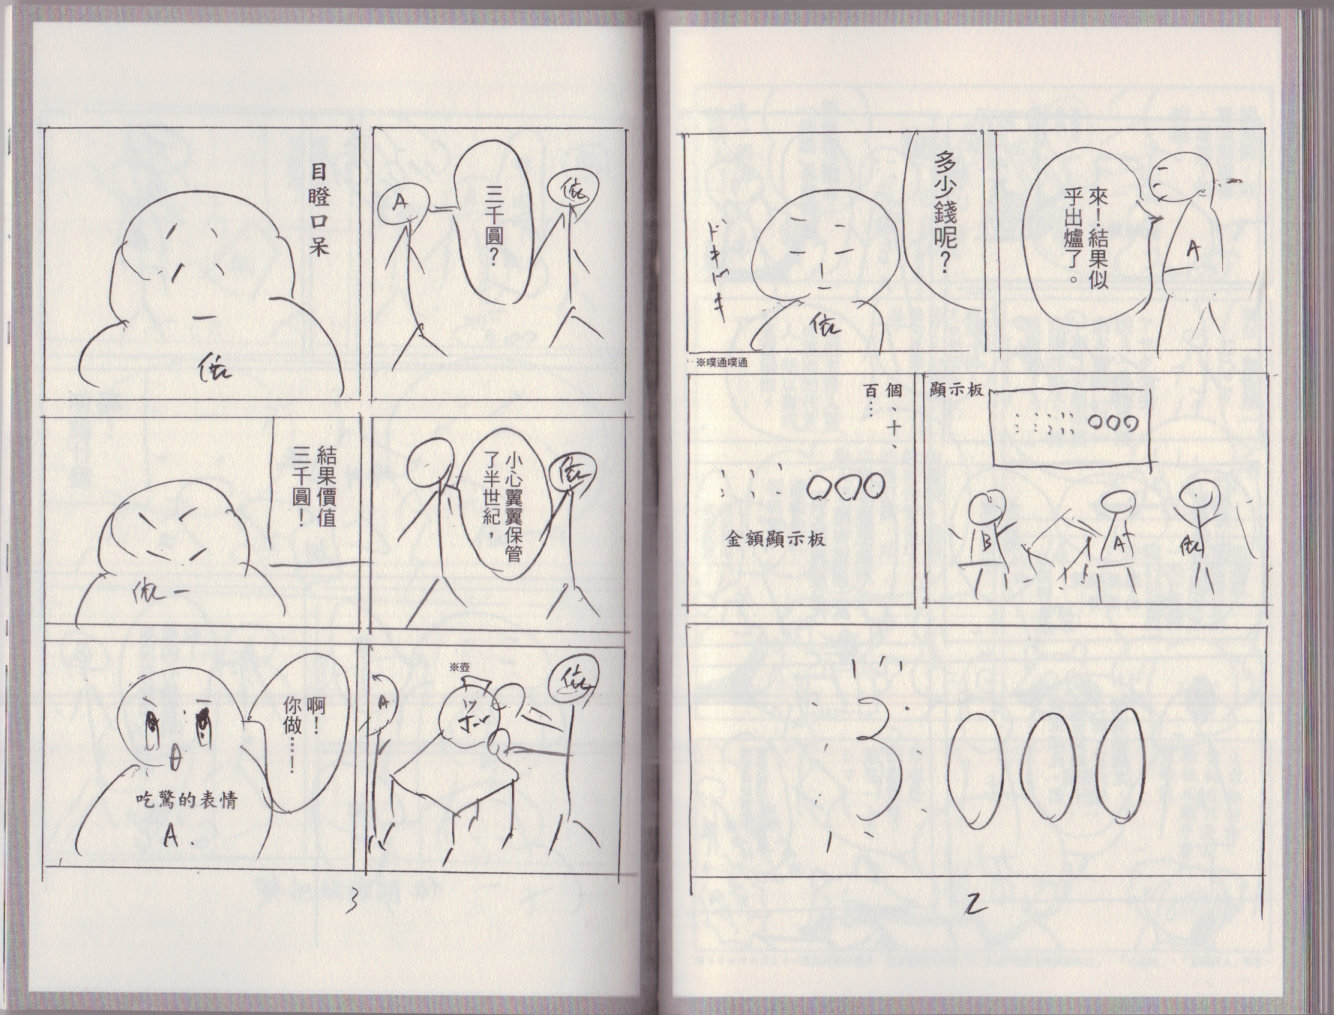 來！結果似
乎出爐了。
A
多少錢呢？
ドキドキ
依
※噗通噗通
顯示板
000
B
A
依
個、十、
百…
000
金額顯示板
3000
2
三千圓？
A
依
目瞪口呆
依
小心翼翼保管
了半世紀，
依
結果價值
三千圓！
依
※壺
A
依
啊！
你做……！
吃驚的表情
A.
3